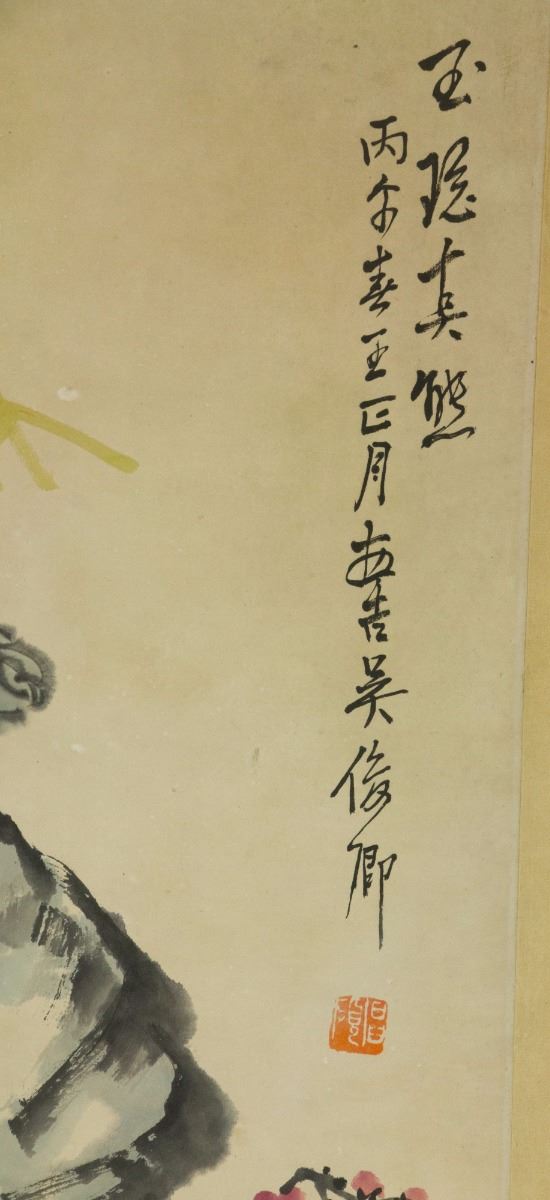 玉真態
丙午春王正月安吉吳俊卿